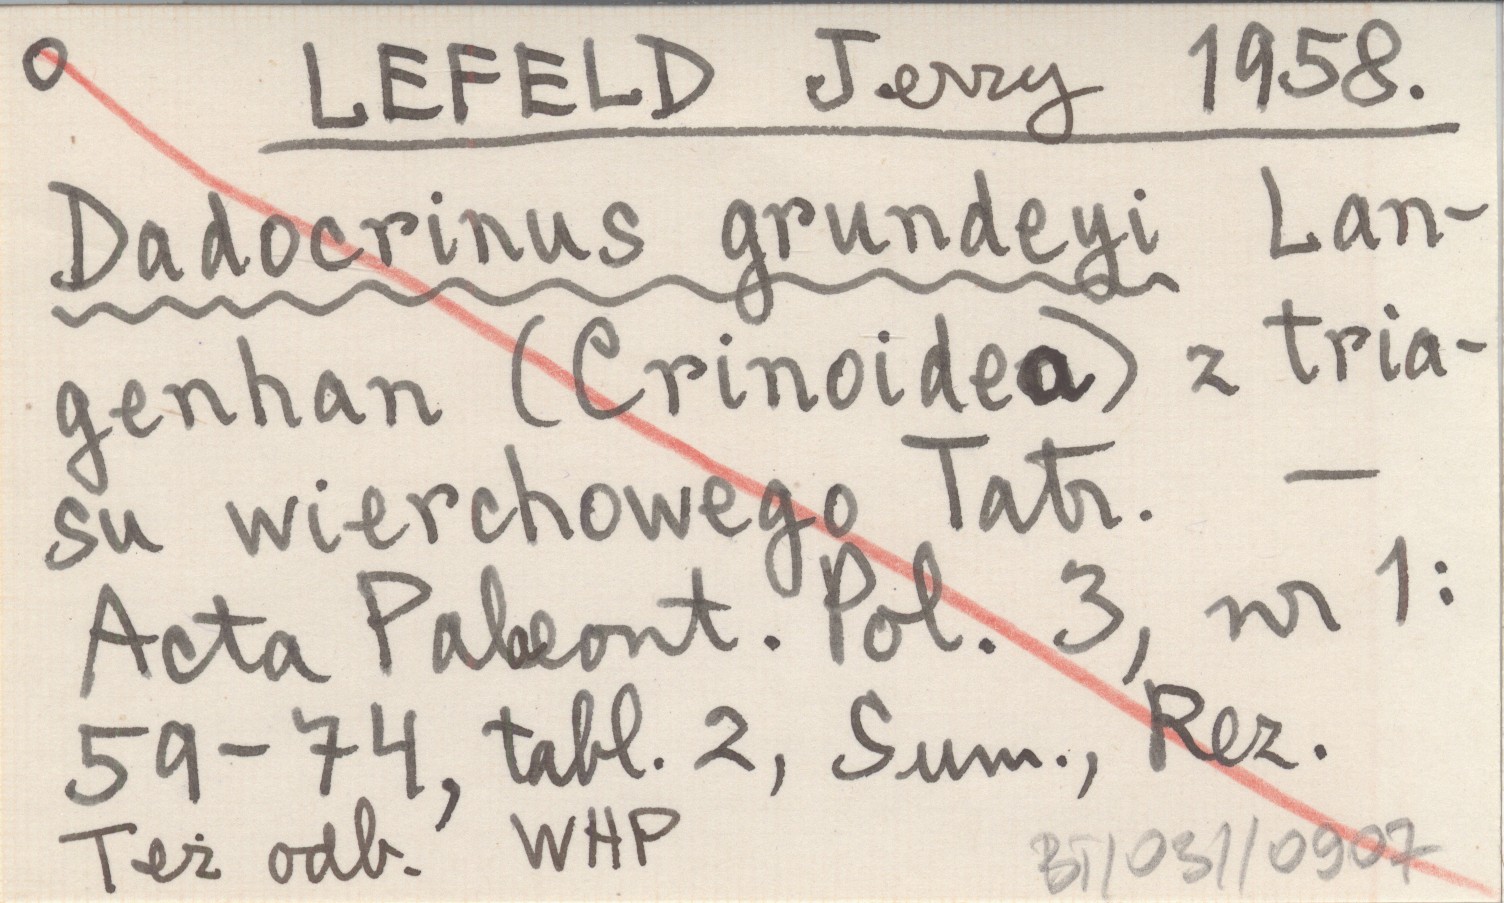 LEFELD Jerzy 1958.
Dadocrinus grundeyi Lan-
genhan (Crinoidea) z tria-
su wierchowego Tatr. —
Acta Palaeont. Pol. 3, nr 1:
59-74, tabl. 2, Sum., Rez.
Też odb. WHP
BT/031/0907